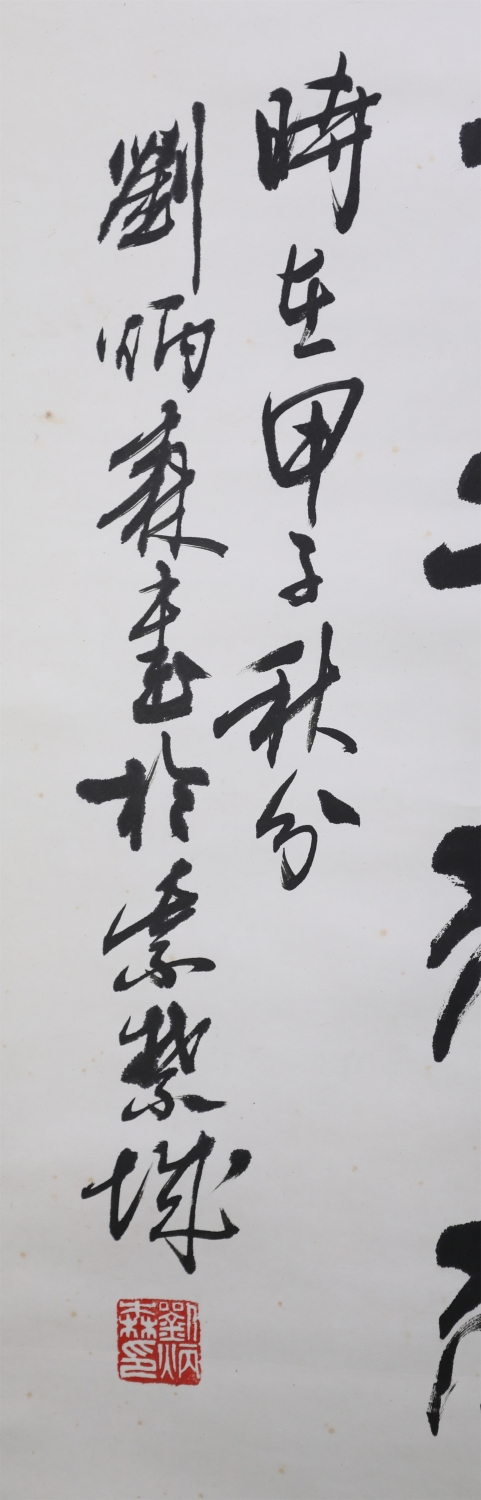 時在甲子秋分
劉炳森書於紫禁城
劉炳森印